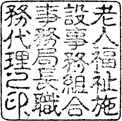 老人福祉施
設事務組合
事務局長職
務代理之印